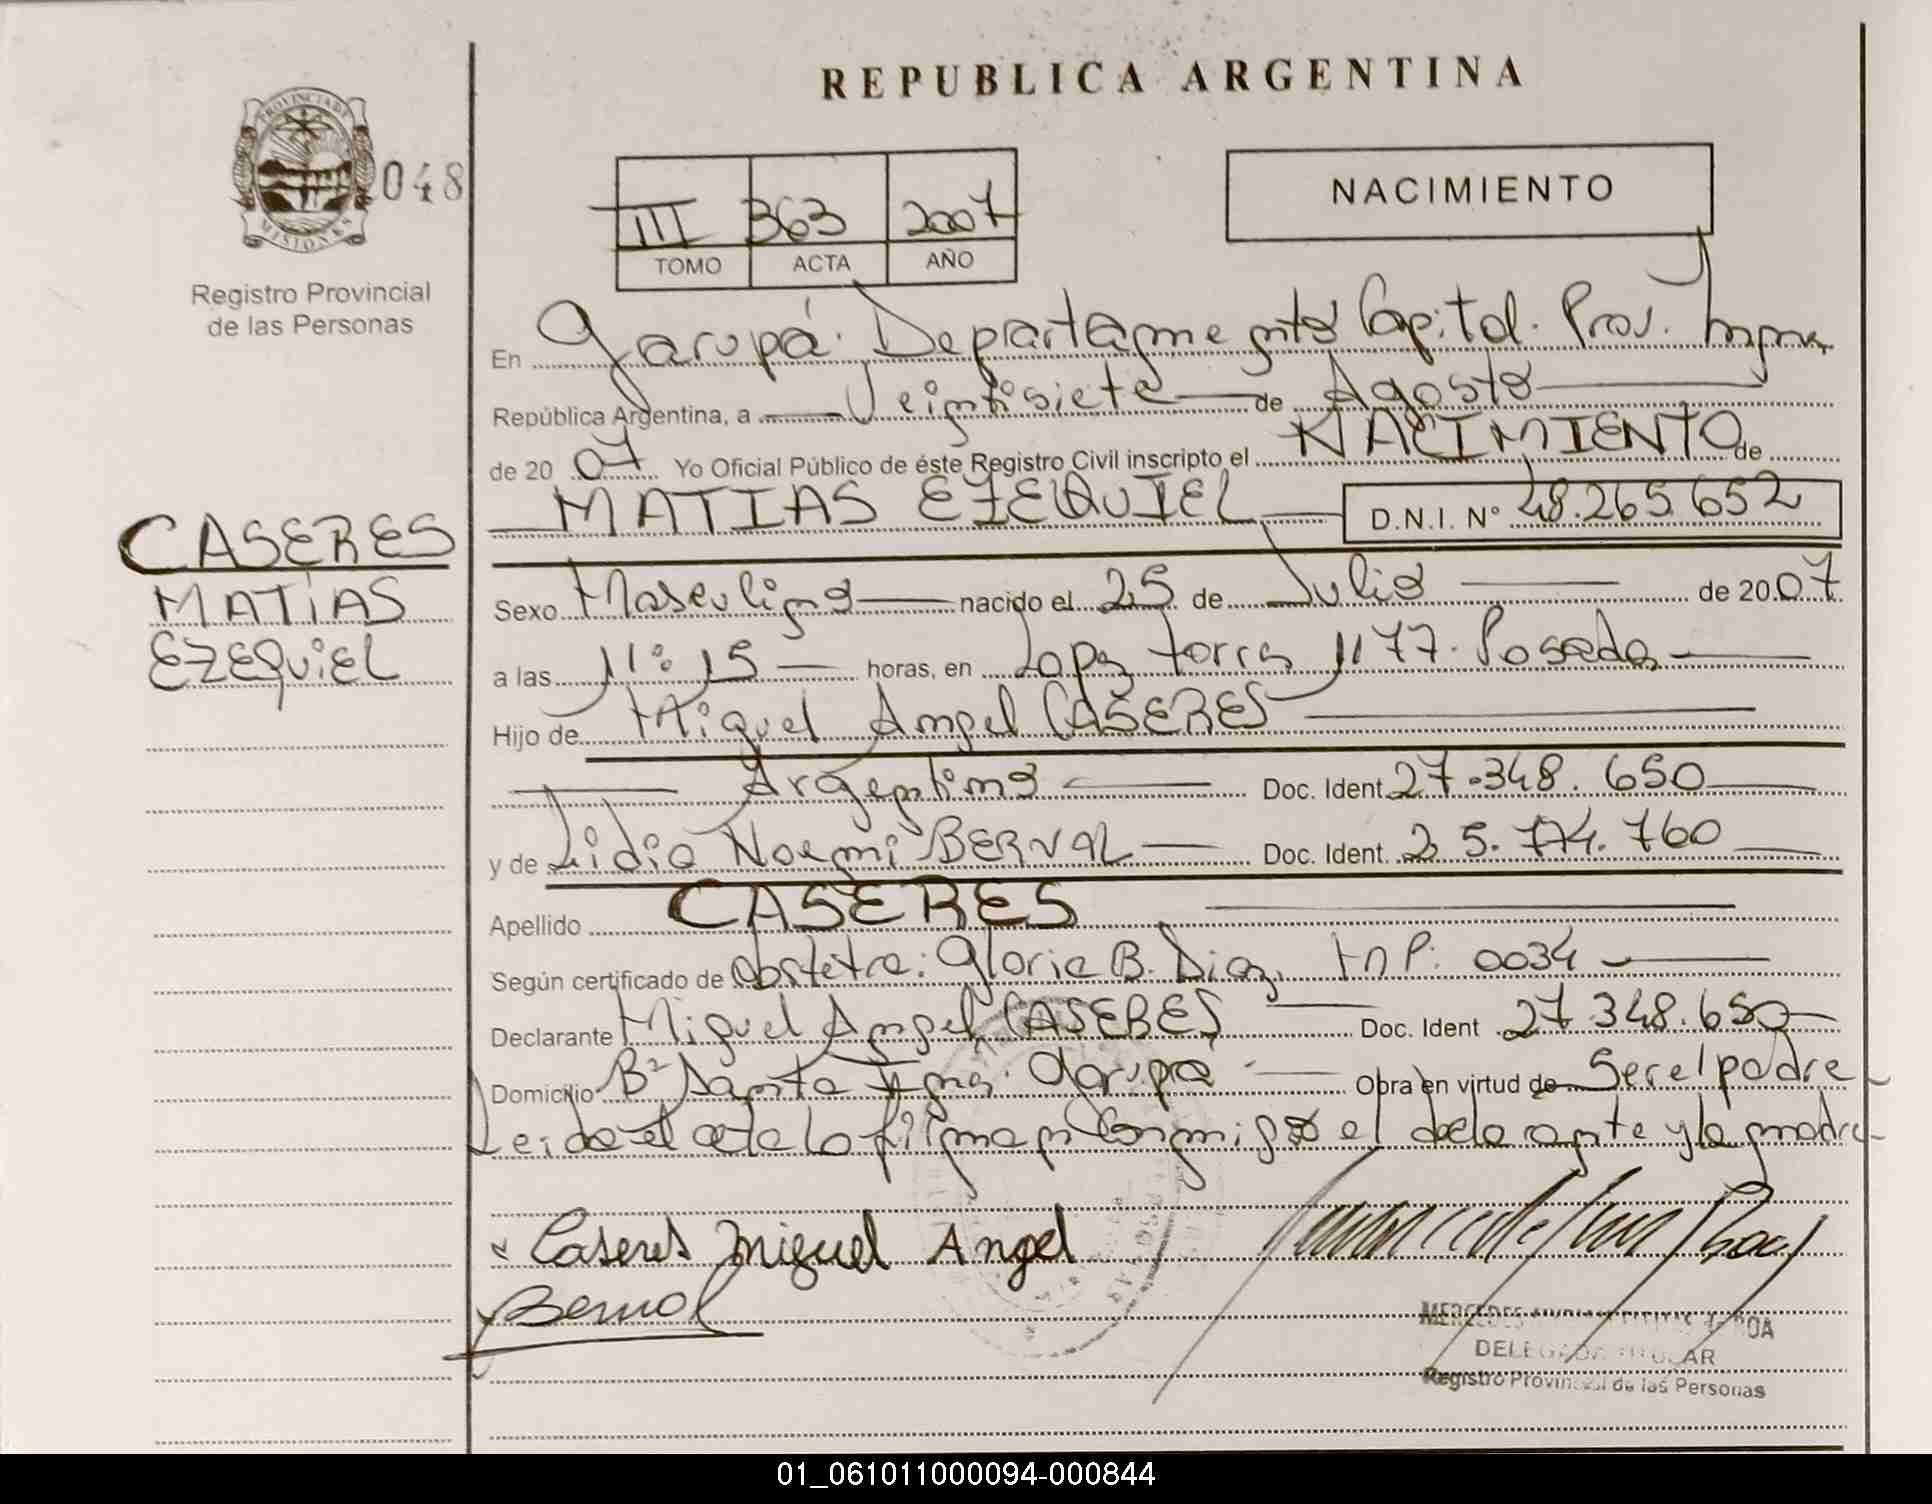 REPUBLICA ARGENTINA
PROVINCIA DE MISIONES
048
Registro Provincial
de las Personas
III 363 2007
TOMO ACTA AÑO
NACIMIENTO
En Garupá. Departamento Capital. Prov. Mnes.
República Argentina, a Veintisiete de Agosto
de 2007 Yo Oficial Público de éste Registro Civil inscripto el NACIMIENTO de
MATIAS EZEQUIEL D.N.I. Nº 48.265.652
CASERES
MATIAS
EZEQUIEL
Sexo Masculino nacido el 25 de Julio de 2007
a las 11:15 horas, en Lopez torres 1177. Posadas
Hijo de Miguel Angel CASERES
Argentino Doc. Ident. 27.348.650
y de Lidia Noemi BERNAL Doc. Ident. 25.774.760
Apellido CASERES
Según certificado de obstetra: Gloria B. Diaz. MP: 0034
Declarante Miguel Angel CASERES Doc. Ident 27.348.650
Domicilio Bº Santa Ines. Garupa Obra en virtud de Ser el padre
Leida el acta lo firman conmigo el declarante y la madre
Caseres Miguel Angel
Bernal
MERCEDES
DELEGADA TITULAR
Registro Provincial de las Personas
01_061011000094-000844